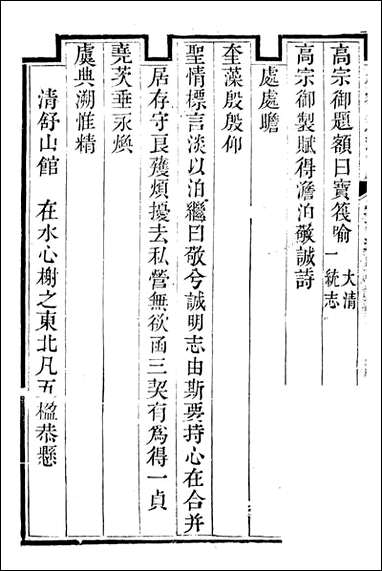 高宗御題額曰寶筏喻大清一統志
高宗御製賦得澹泊敬誠詩
處處瞻
奎藻殷殷仰
聖情標言淡以泊繼曰敬兮誠明志由斯要持心在合并
居存守良穫煩擾去私營無欲函三契有為得一貞
堯茨垂永煥
虞典溯惟精
清舒山館 在水心榭之東北凡五楹恭懸